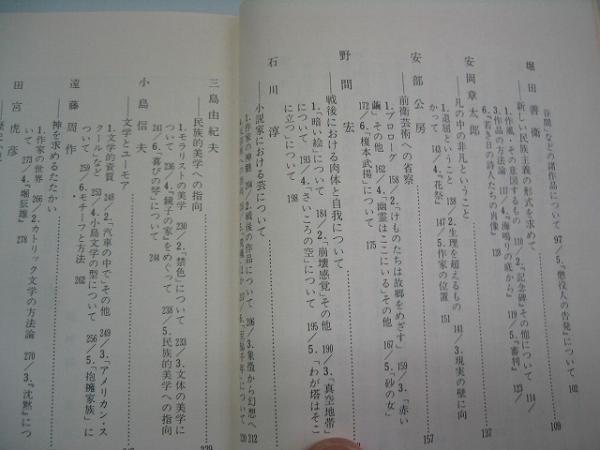 谷間」などの諸作品について 97/5.「僭没人の告発」について 102
堀田善衛
――新しい民族主義の形式を求めて……109
1.作風・その意図するもの 110/2.「記念碑」その他について 114/
3.作品の方法論 117/4.「海鳴りの底から」 /5.「審判」 123/
6.『若き日の詩人たちの肖像』 128
安岡章太郎
――凡の中の非凡ということ……137
1.退屈ということ 138/2.生理を超えるもの 141/3.現実の壁に向
かって 143/4.『花祭』 147/5.作家の位置 151
安部公房
――前衛芸術への省察……157
1.プロローグ 158/2.「けものたちは故郷をめざす」 159/3.「赤い
繭」その他 162/4.「幽霊はここにいる」その他 167/5.「砂の女」
172/6.「榎本武揚」 175
野間宏
――戦後における肉体と自我について
1.「暗い絵」について 184/2.「崩壊感覚」その他 190/3.「真空地帯」
について 193/4.「さいころの空」について 195/5.「わが塔はそこ
に立つ」について 198
石川淳
――小説家における芸について
1.作家の神髄 204/2.戦後の作品について 206/3.象徴から幻想へ
212
について 220
三島由紀夫
――民族的美学への指向……229
1.モラリストの美学 230/2.「禁色」について 233/3.文体の美学に
ついて 236/4.「鏡子の家」をめぐって 238/5.民族的美学への指向
241/6.「喜びの琴」について 244
小島信夫
――文学とユーモア
1.文学的資質 248/2.「汽車の中で」その他 249/3.「アメリカン・ス
クール」など 253/4.小島文学の型について 256/5.「抱擁家族」に
ついて 259/6.モチーフと方法 262
遠藤周作
――神を求めるたたかい
1.作家の世界 266/2.カトリック文学の方法論 270/3.『沈黙』につ
いて 278
田宮虎彦